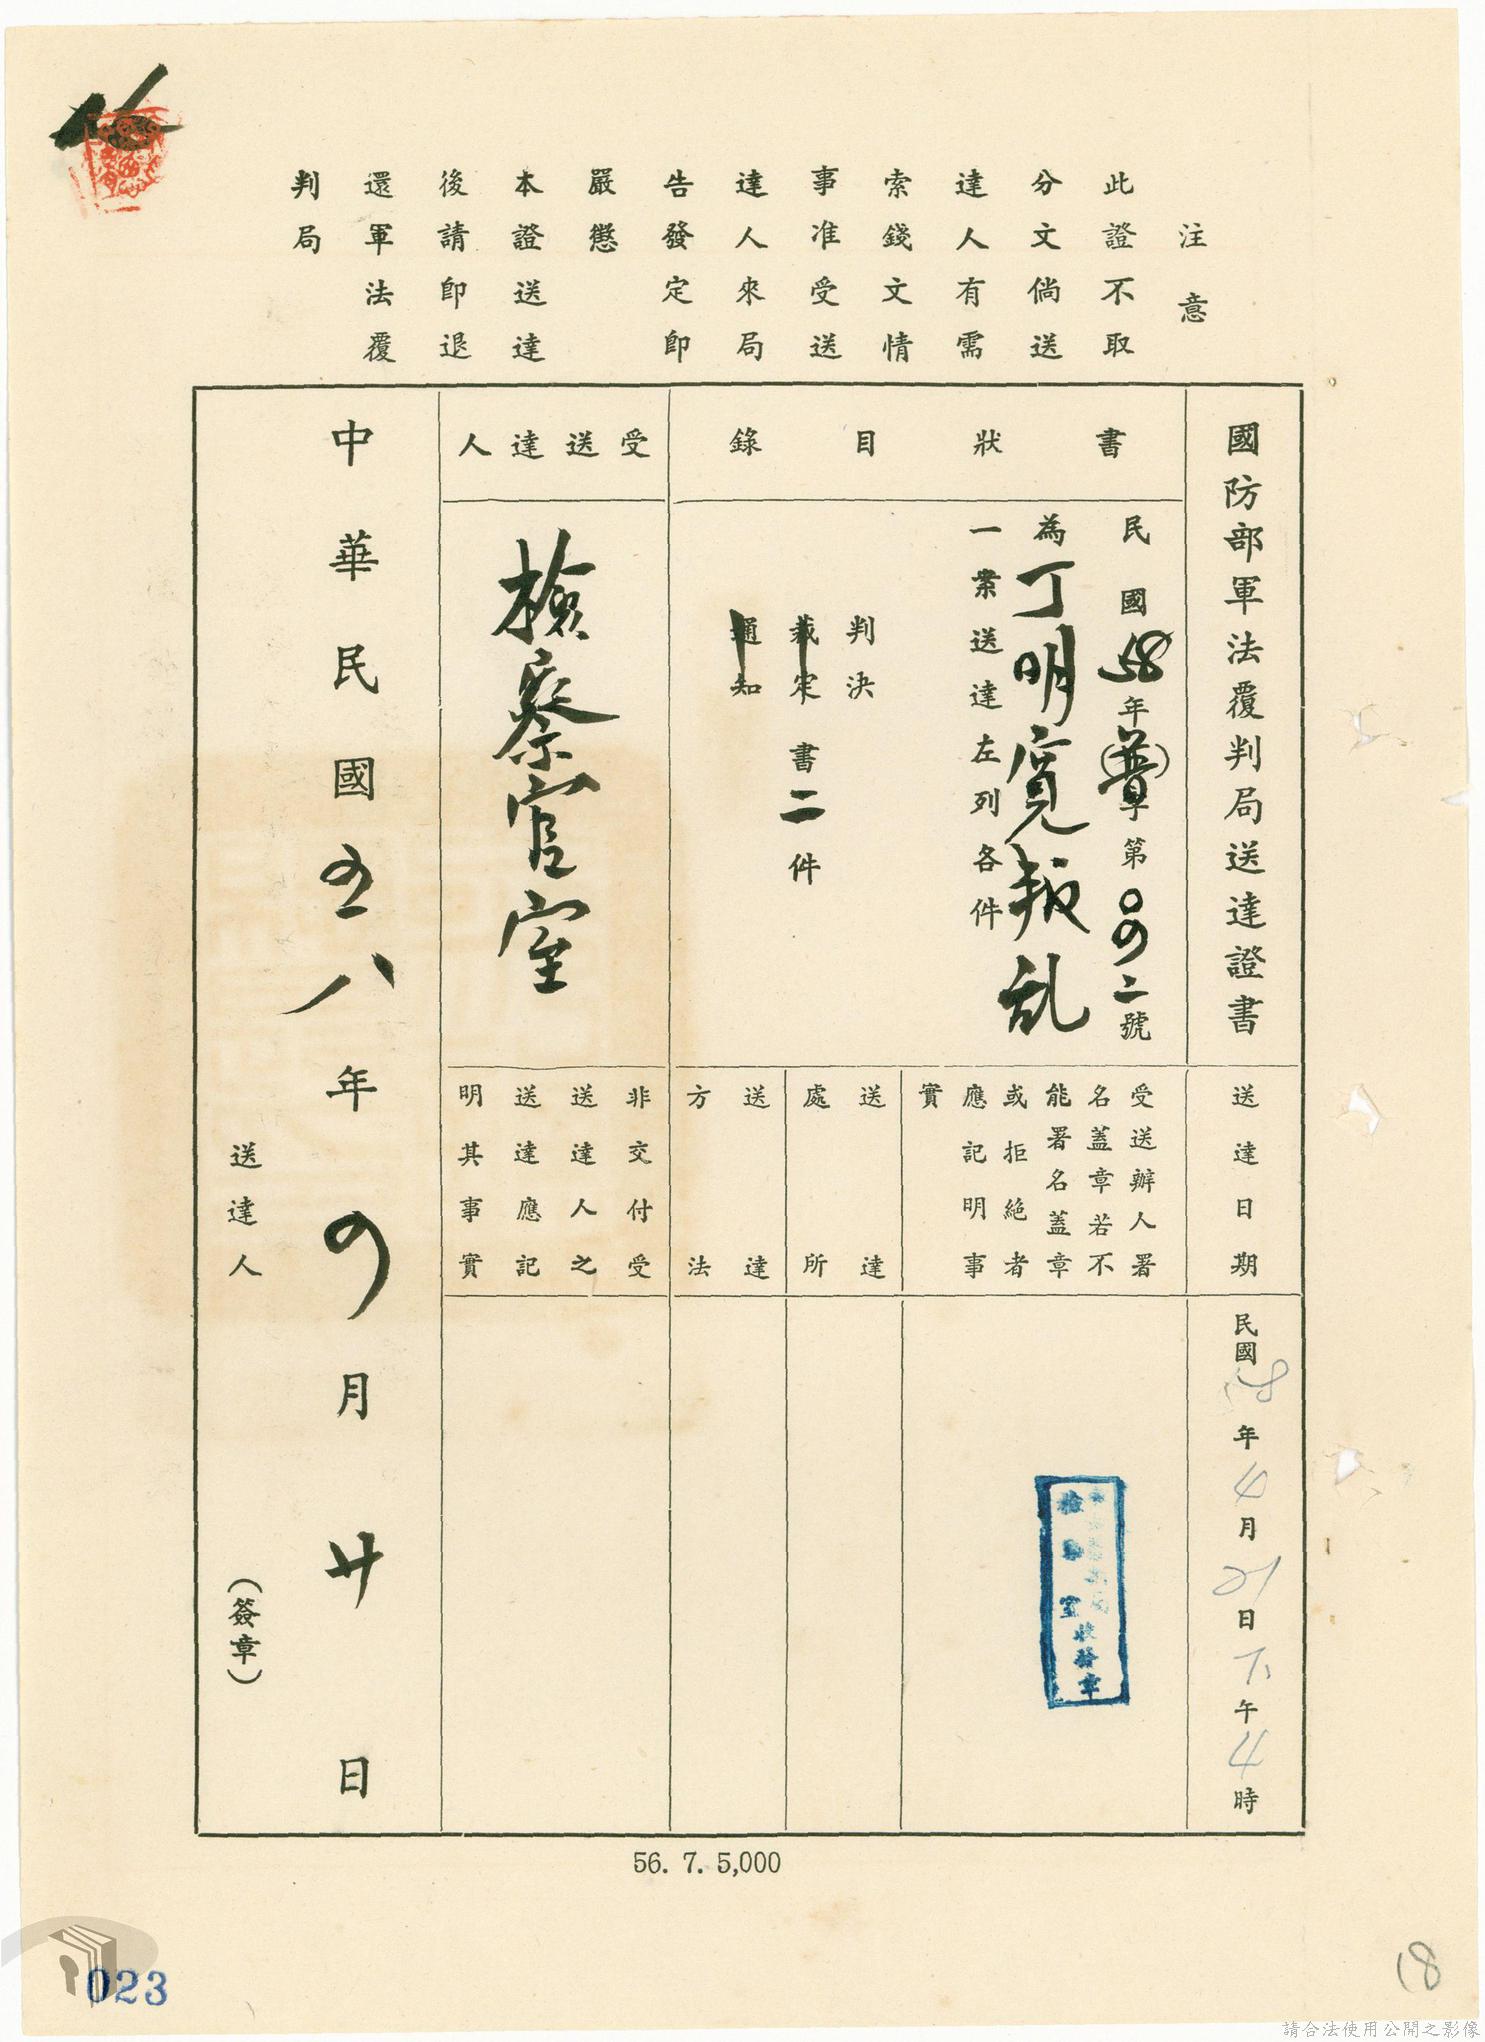 注意
此證不取
分文倘送
達人有需
索錢文情
事准受送
達人來局
告發定即
嚴懲
本證送達
後請即退
還軍法覆
判局
國防部軍法覆判局送達證書
書狀目錄
民國58年(普)字第〇四二號
為丁明寬叛乱
一案送達左列各件
判決
裁定
通知
書二件
受送達人
檢察官室
送達日期
民國58年4月21日下午4時
受送辦人署
名蓋章若不
能署名蓋章
或拒絕者
應記明事
實
送達
處所
送達
方法
非交付受
送達人之
送達應記
明其事實
收發章
中華民國五八年四月廿日
送達人
(簽章)
56. 7. 5,000
023
18
請合法使用公開之影像